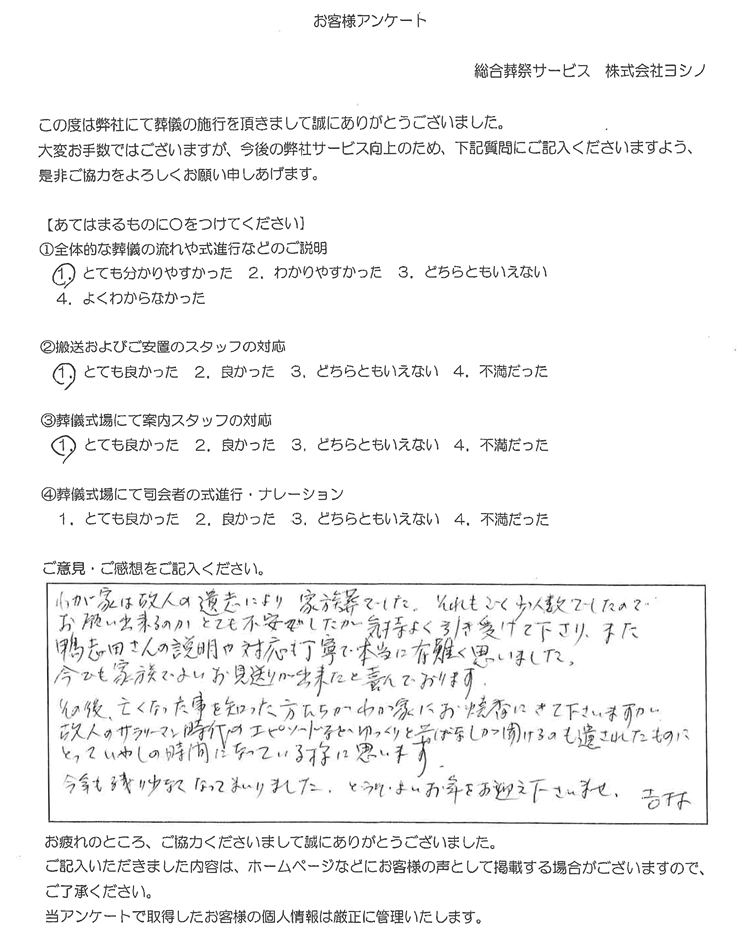 お客様アンケート
総合葬祭サービス　株式会社ヨシノ
この度は弊社にて葬儀の施行を頂きまして誠にありがとうございました。
大変お手数ではございますが、今後の弊社サービス向上のため、下記質問にご記入くださいますよう、
是非ご協力をよろしくお願い申しあげます。
【あてはまるものに〇をつけてください】
①全体的な葬儀の流れや式進行などのご説明
1．とても分かりやすかった　2．わかりやすかった　3．どちらともいえない
4．よくわからなかった
②搬送およびご安置のスタッフの対応
1．とても良かった　2．良かった　3．どちらともいえない　4．不満だった
③葬儀式場にて案内スタッフの対応
1．とても良かった　2．良かった　3．どちらともいえない　4．不満だった
④葬儀式場にて司会者の式進行・ナレーション
1．とても良かった　2．良かった　3．どちらともいえない　4．不満だった
ご意見・ご感想をご記入ください。
わが家は故人の遺志により 家族葬でした。それもごく少人数でしたので
お願い出来るのか とても不安でしたが 気持よく引き受けて下さり、また
鴨志田さんの説明や対応も丁寧で本当に有難く思いました。
今でも家族でよいお見送りが出来たと喜んでおります。
その後、亡くなった事を知った方たちが わが家にお焼香にきて下さいますが
故人のサラリーマン時代のエピソードをゆっくりと昔ばなしが聞けるのも遺されたものに
とっていやしの時間になっている様に思います。
今年も残り少なくなってまいりました。どうぞ、よいお年をお迎え下さいませ。 吉村
お疲れのところ、ご協力くださいまして誠にありがとうございました。
ご記入いただきました内容は、ホームページなどにお客様の声として掲載する場合がございますので、
ご了承ください。
当アンケートで取得したお客様の個人情報は厳正に管理いたします。